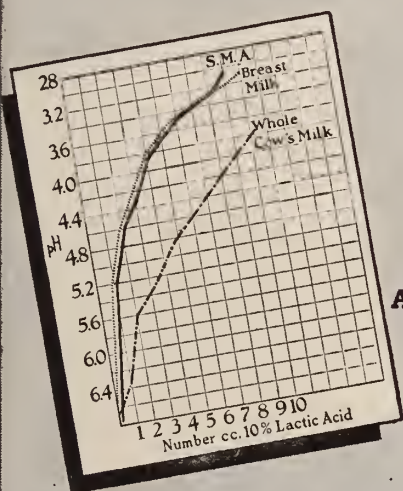 2.8
S.M.A.
Breast
Milk
3.2
Whole
Cow's Milk
3.6
4.0
4.4
pH
4.8
5.2
5.6
6.0
6.4
1 2 3 4 5 6 7 8 9 10
Number cc. 10% Lactic Acid
A